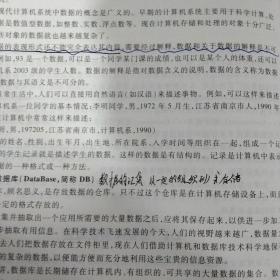 现代计算机系统中数据的概念是广义的。早期的计算机系统主要用于科学计算,
是数值型数据,如整数、实数、浮点数等。现在计算机存储和处理的对象十分广泛,
对象的数据就也越来越复杂了。
的表现形式还不能完全表达其内容,需要经过解释,数据和关于数据的解释是不可
如,93是一个数据,可以是一个同学某门课的成绩,也可以是某个人的体重,还可以
系2003级的学生人数。数据的解释是指对数据含义的说明,数据的含义称为数据
数据与其语义是不可分的。
日常生活中,人们可以直接用自然语言(如汉语)来描述事物。例如,可以这样来描
机系一位同学的基本情况:李明同学,男,1972年5月生,江苏省南京市人,1990年
计算机中常常这样来描述:
明,男,197205,江苏省南京市,计算机系,1990)
的姓名、性别、出生年月、出生地、所在院系、入学时间等组织在一起,组成一个记
的学生记录就是描述学生的数据。这样的数据是有结构的。记录是计算机中表示
据的一种格式或一种方法。
数据库(DataBase,简称DB)
,顾名思义,是存放数据的仓库。只不过这个仓库是在计算机存储设备上,而
一定的格式存放的。
集并抽取出一个应用所需要的大量数据之后,应将其保存起来,以供进一步加
步抽取有用信息。在科学技术飞速发展的今天,人们的视野越来越广,数据量
去人们把数据存放在文件柜里,现在人们借助计算机和数据库技术科学地保
的复杂的数据,以便能方便而充分地利用这些宝贵的信息资源。
数据库是长期储存在计算机内、有组织的、可共享的大量数据的集合。